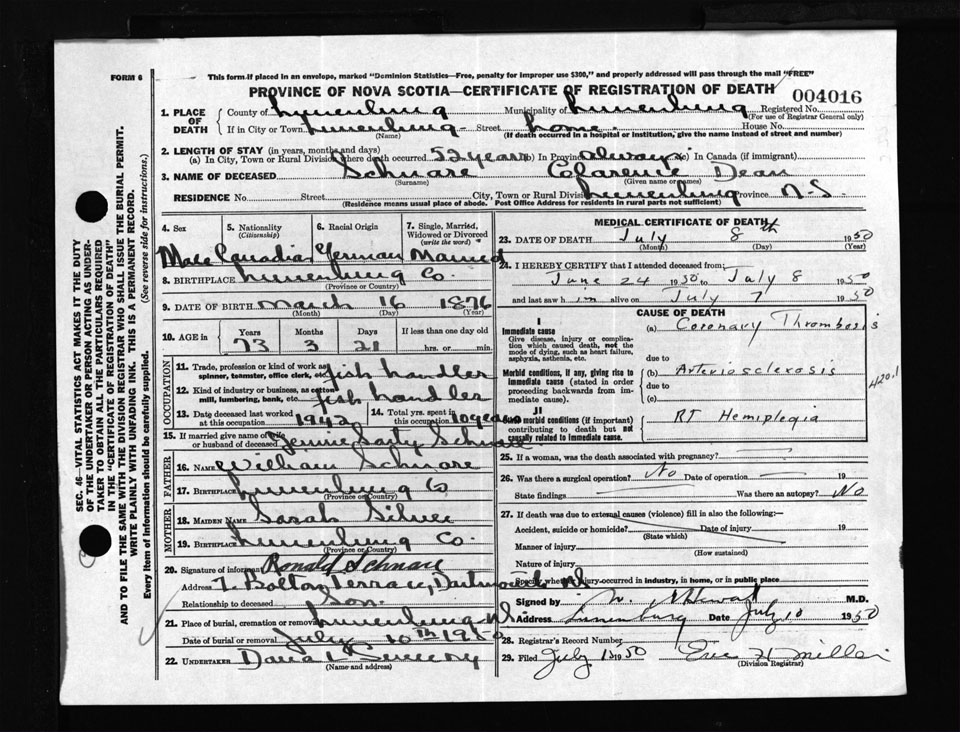 FORM 6
This form if placed in an envelope, marked "Dominion Statistics—Free, penalty for improper use $300," and properly addressed will pass through the mail "FREE"
PROVINCE OF NOVA SCOTIA—CERTIFICATE OF REGISTRATION OF DEATH
004016
1. PLACE OF DEATH County of Lunenburg Municipality of Lunenburg Registered No.
(For use of Registrar General only)
If in City or Town Lunenburg Street home House No.
(Name) (If death occurred in a hospital or institution, give the name instead of street and number)
2. LENGTH OF STAY (in years, months and days)
(a) In City, Town or Rural Division where death occurred 52 years (b) In Province always (c) In Canada (if immigrant)
3. NAME OF DECEASED Schnare Clarence Dean
(Surname) (Given name or names)
RESIDENCE No. Street City, Town or Rural Division Lunenburg Province N-S
(Residence means usual place of abode. Post Office Address for residents in rural parts not sufficient)
4. Sex 5. Nationality (Citizenship) 6. Racial Origin 7. Single, Married, Widowed or Divorced (write the word)
Male Canadian German Married
8. BIRTHPLACE Lunenburg Co.
(Province or Country)
9. DATE OF BIRTH March 16 1876
(Month) (Day) (Year)
10. AGE in Years Months Days If less than one day old
73 3 21 hrs. or min.
OCCUPATION
11. Trade, profession or kind of work as spinner, teamster, office clerk, etc. fish handler
12. Kind of industry or business, as cotton mill, lumbering, bank, etc. fish handler
13. Date deceased last worked at this occupation 1942 14. Total yrs. spent in this occupation 10 years
15. If married give name of wife or husband of deceased Jennie Schnare
FATHER
16. Name William Schnare
17. Birthplace Lunenburg Co
(Province or Country)
MOTHER
18. Maiden Name Sarah Silver
19. Birthplace Lunenburg Co.
(Province or Country)
20. Signature of informant Ronald Schnare
Address 7 Bolton Terrace, Dartmouth NS
Relationship to deceased Son.
21. Place of burial, cremation or removal Lunenburg NS
Date of burial or removal July 10th 1950
22. UNDERTAKER Sweeny
(Name and address)
MEDICAL CERTIFICATE OF DEATH
23. DATE OF DEATH July 8th 1950
(Month) (Day) (Year)
24. I HEREBY CERTIFY that I attended deceased from:
June 24 1950 to July 8 1950
and last saw him alive on July 7 1950
CAUSE OF DEATH
I
Immediate cause
Give disease, injury or complication which caused death, not the mode of dying, such as heart failure, asphyxia, asthenia, etc.
(a) Coronary Thrombosis
due to
Morbid conditions, if any, giving rise to immediate cause (stated in order proceeding backwards from immediate cause).
(b) Arteriosclerosis
due to
(c)
4201
II
Other morbid conditions (if important) contributing to death but not causally related to immediate cause.
RT Hemiplegia
25. If a woman, was the death associated with pregnancy?
26. Was there a surgical operation? No Date of operation 19
State findings Was there an autopsy? No
27. If death was due to external causes (violence) fill in also the following:—
Accident, suicide or homicide? Date of injury 19
(State which)
Manner of injury
(How sustained)
Nature of injury
Specify whether injury occurred in industry, in home, or in public place
Signed by M.D.
Address Lunenburg Date July 10 1950
28. Registrar's Record Number
29. Filed July 1950 Eric H Miller
(Division Registrar)
SEC. 46—VITAL STATISTICS ACT MAKES IT THE DUTY
OF THE UNDERTAKER OR PERSON ACTING AS UNDER-
TAKER TO OBTAIN ALL THE PARTICULARS REQUIRED
IN THE "CERTIFICATE OF REGISTRATION OF DEATH"
AND TO FILE THE SAME WITH THE DIVISION REGISTRAR WHO SHALL ISSUE THE BURIAL PERMIT.
WRITE PLAINLY WITH UNFADING INK. THIS IS A PERMANENT RECORD.
Every item of Information should be carefully supplied. (See reverse side for instructions.)